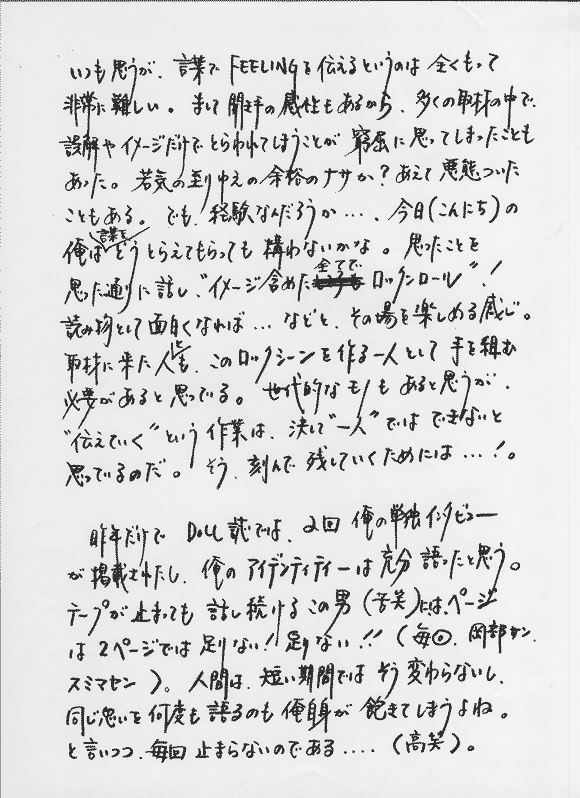 いつも思うが、言葉で FEELINGを伝えるというのは 全くもって
非常に難しい。まして聞き手の感性もあるから、多くの取材の中で、
誤解やイメージだけでとらわれてしまうことが 窮屈に思ってしまったことも
あった。若気の至りゆえの余裕のナサか?あえて悪態ついた
こともある。でも、経験なんだろうか…、今日(こんにち)の
俺は言葉をどうとらえてもらっても構わないかな。思ったことを
思った通りに話し、“イメージ含めた全てで ロックンロール”!
読み物として面白くなれば… などと、その場を楽しめる感じ。
取材に来た人と、このロックシーンを作る一人として手を組む
必要があると思っている。世代的なモノもあると思うが、
“伝えていく”という作業は、決して“一人”では できないと
思っているのだ。そう、刻んで残していくためには…!。
昨年だけで DOLL誌では、2回 俺の単独インタビュー
が掲載されたし、俺のアイデンティティーは充分 語ったと思う。
テープが止まっても 話し続けるこの男(苦笑)には、ページ
は2ページでは足りない!足りない!!(毎回、岡部サン、
スミマセン)。人間は、短い期間では そう変わらないし、
同じ思いを何度も語るのも俺自身が 飽きてしまうよね。
と言いつつ、毎回止まらないのである….(高笑)。